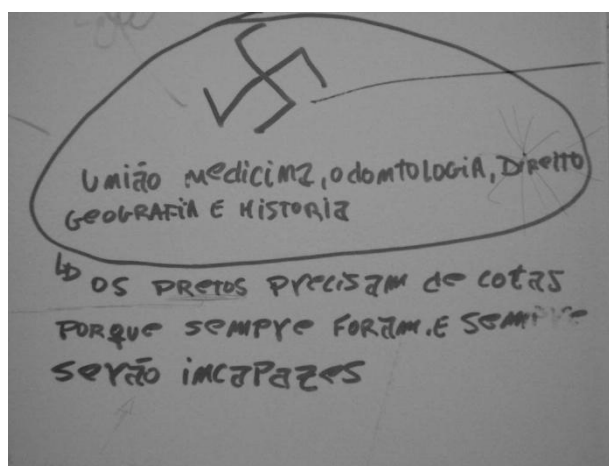 União medicina, odomtologia, Direito
Geografia e Historia
os pretos precisam de cotas
porque sempre foram. E sempre
serão imcapazes